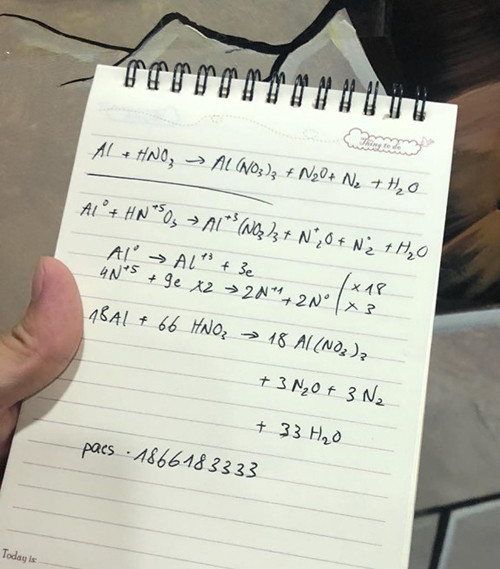 Things to do
Al + HNO₃ → Al(NO₃)₃ + N₂O + N₂ + H₂O
Al⁰ + HN⁺⁵O₃ → Al⁺³(NO₃)₃ + N⁺₂O + N₂⁰ + H₂O
Al⁰ → Al⁺³ + 3e | x 18
4N⁺⁵ + 9e x2 → 2N⁺¹ + 2N⁰ | x 3
18Al + 66 HNO₃ → 18 Al(NO₃)₃
+ 3N₂O + 3N₂
+ 33 H₂O
pacs · 1866183333
Today is